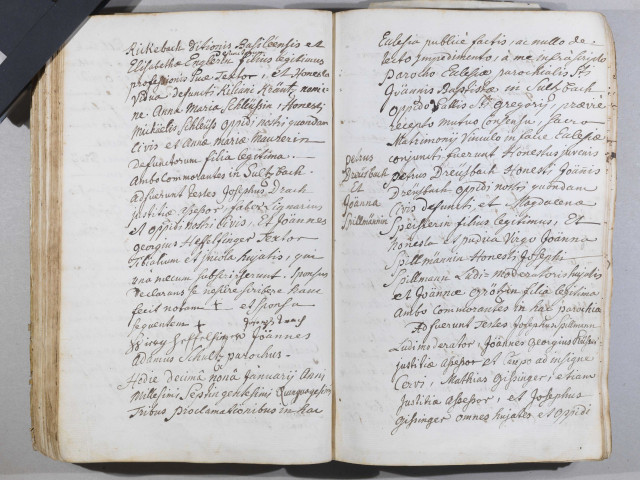 Rickebach Ditionis Basileensis et
Elisabethæ Englerin defunctorum filius legitimus
professionis suæ Textor, et Honesta
Vidua defuncti Kiliani Krantz, nomi-
ne Anna Maria Schleüssin, Honesti
Michaëlis Schleüss oppidi nostri quondam
Civis et Annæ Mariæ Maurerin
defunctorum filia legitima.
Ambo Commorantes in Sultzbach.
adfuerunt testes Josephus Drach
justitiæ assessor, faber Lignarius
et oppidi nostri Civis, Et Joannes
georgius Heffelfinger Textor
Tibialium et incola hujatis, qui
una mecum subscripserunt. sponsus
declarans se nescire scribere hanc
fecit notam + et sponsa
sequentem +
Heffelfinger Joannes
Adamus Schultz parochus.
Hodie decimâ nonâ Januarij Anni
Millesimi Septingentesimi Quinquagesimi
Tribus proclamationibus in hac
Eclesia publicè factis, ac nullo de-
tecto impedimento, a me infrascripto
parocho Eclesiæ parochialis Sti
Joannis Baptistæ in Sultzbach
oppido Vallis Sti Gregorij, prære
recepto mutuo Consensu, sacro
Matrimonij Vinculo in facie Eclesiæ
conjuncti fuerunt Honestus juvenis
petrus Dreüsbach Honesti Joannis
Dreüsbach oppidi nostri quondam
Civis defuncti, et Magdalenæ
Speisserin filius legitimus, Et
honesta et pudica Virgo Joanna
Spillmännin Honesti Josephi
Spillmann Ludi-moderatoris hujatis
et Joannæ Groben filia legitima
Ambo Commorantes in hac parochia
Adfuerunt Testes Josephus Spillmann
Ludimoderator, Joannes Georgius
justitiæ assessor et Caupo ad insigne
Cervi, Mathias Gissinger, etiam
Justitiæ assessor, et Josephus
Gissinger omnes hujates et oppidi
petrus
Dreüsbach
Et
Joanna
Spillmännin